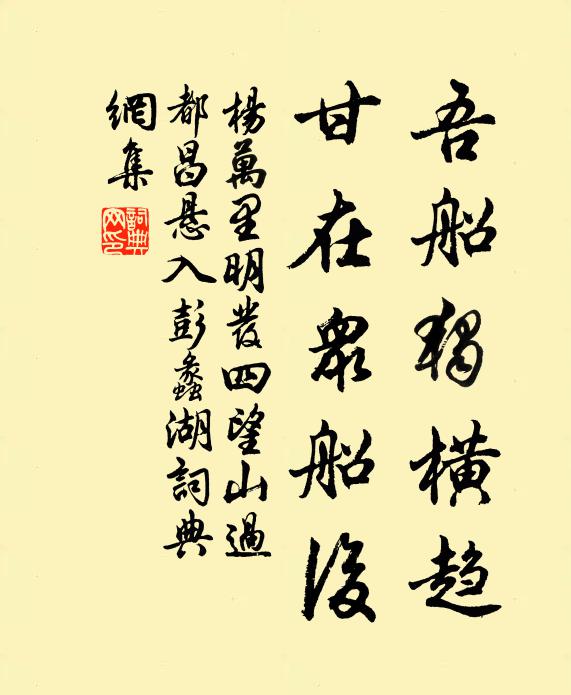 吾船獨橫趨
甘在衆船後
楊萬里明發四望山過
都昌懸入彭蠡湖詞典
網集
詞典網印